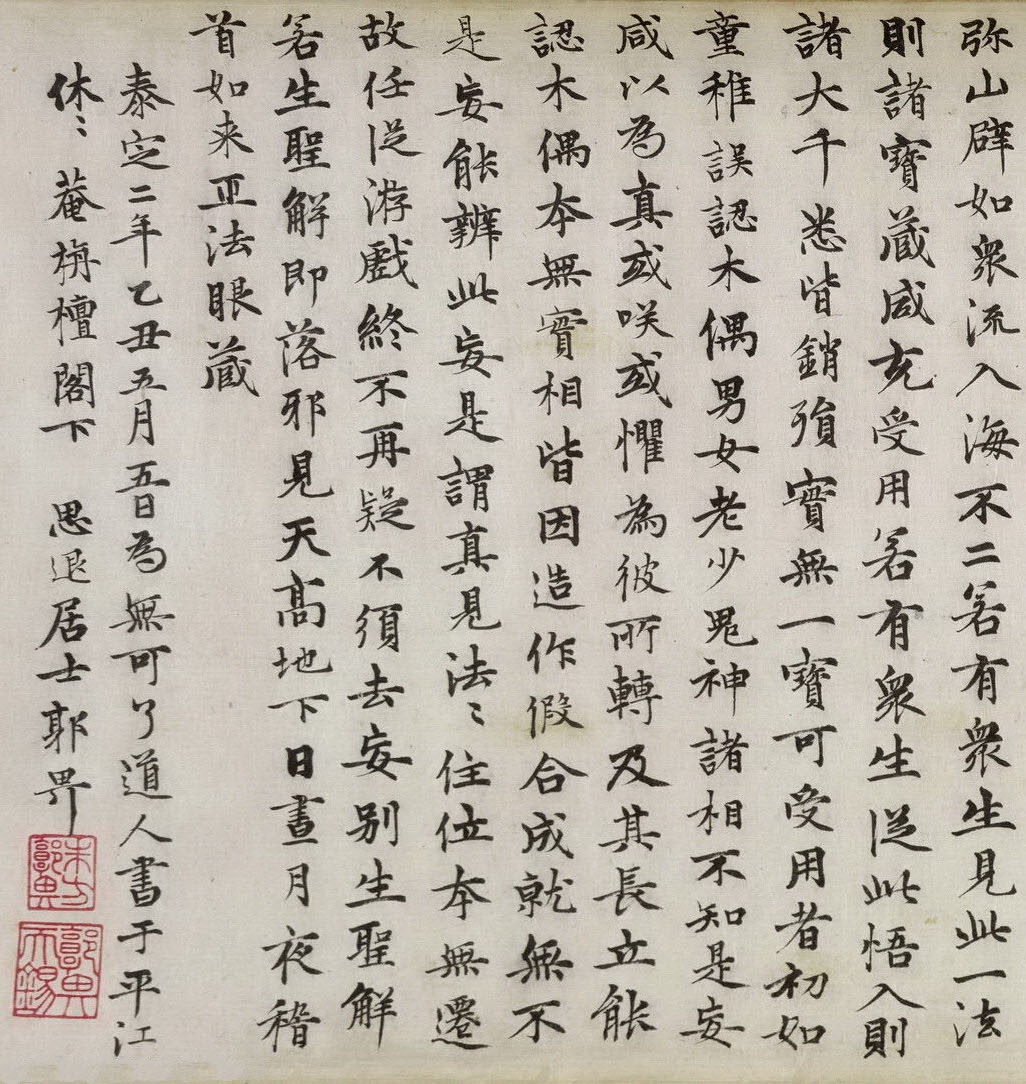 弥山辟如衆流入海不二若有衆生見此一法
則諸寶蔵咸充受用若有衆生従此悟入則
諸大千悉皆銷殞實無一寶可受用者初如
童稚誤認木偶男女老少鬼神諸相不知是妄
咸以為真或咲或懼為彼所轉及其長立能
認木偶本無實相皆因造作假合成就無不
是妄能辨此妄是謂真見法〻住位本無遷
故任従游戲終不再疑不須去妄别生聖解
若生聖解即落邪見天高地下日晝月夜稽
首如来正法眼蔵
泰定二年乙丑五月五日為無可了道人書于平江
休〻菴栴檀閣下 思退居士郭畀
郭畀
郭畀天錫